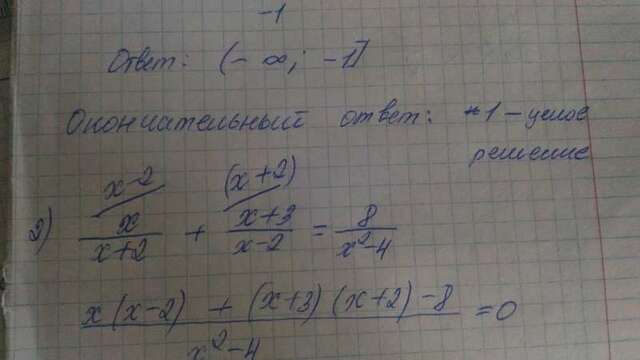 -1
Ответ: (- ∞; -1]
Окончательный ответ: -1 – целое
решение
x-2 (x+2)
2) x/x+2 + x+3/x-2 = 8/x²-4
x(x-2) + (x+3)(x+2)-8 = 0
x²-4